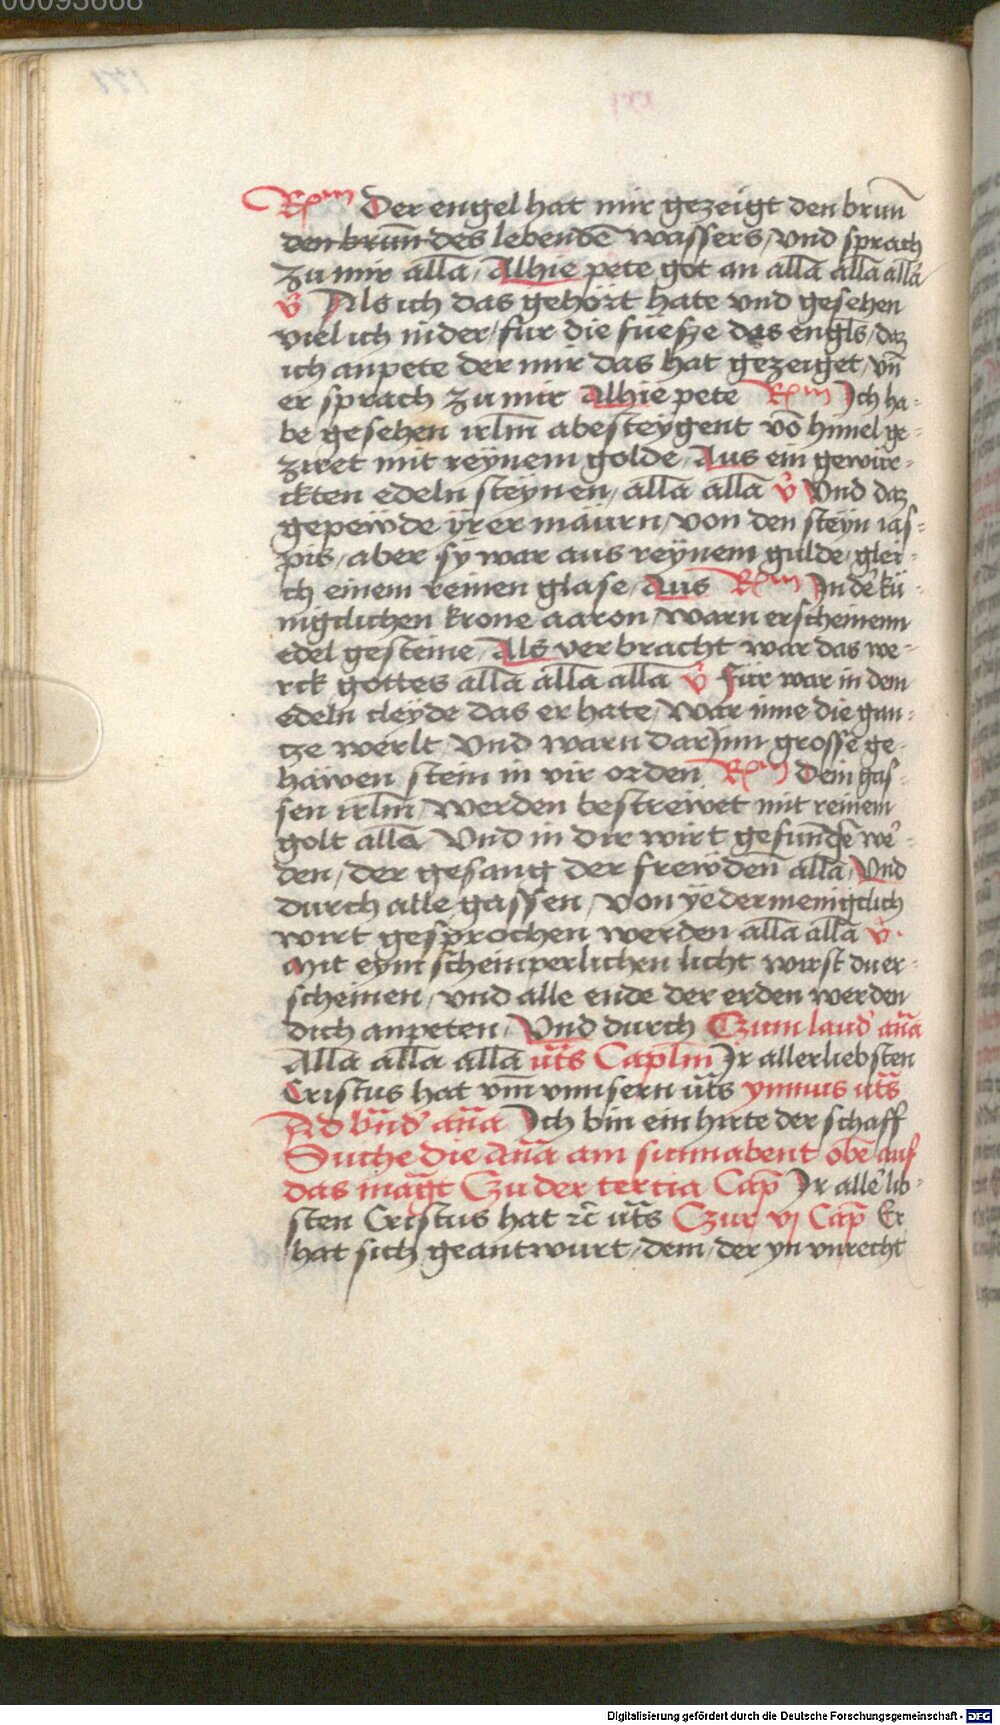 00093668
Rꝭm Der engel hat mir gezeigt den brun̄
den brun̄ des lebenden̄ wassers, vnd sprach
zu mir all̄a, Alhie pete got an all̄a all̄a all̄a
v̉ Als ich das gehört hate vnd gesehen
viel ich nider, fur die fuesze des engls, daz
ich anpete der mir das hat gezeiget, vn̄
er sprach zu mir Alhie pete Rꝭm Ich ha-
be gesehen irlm̄ abesteygent vō himel ge-
ziret mit reÿnem golde, Aus ein gewur-
ckten edeln steynen, all̄a all̄a v̉ Vnd daz
gepeẅde ÿrer mäurn, von den steyn ias-
pis, aber sÿ war aus reÿnem gulde, glei-
ch einem reinen glase, Aus Rꝭm In de᷑ kü-
nigclichen krone aaron, warn erscheinenn
edel gesteine, Als verbracht war das we-
rck gottes all̄a all̄a all̄a v̉ Für war in dem
edeln cleyde das er hate, War inne die gan-
tze werlt, Vnd warn darjnn grosse ge-
hawen stein in vir orden Rꝭm Dein gas-
sen irlm̄, werden bestreiwet mit reinem
golt all̄a, Vnd in dir wirt gefunden̄ we᷑-
den, der gesang der frewden̄ all̄a, Vnd
durch alle gassen, von yedermenigclich
wirt gesprochen werden all̄a all̄a v̉.
Mit eym scheinperlichen licht wirst du er-
scheinen, vnd alle ende der erden werden
dich anpeten, Vnd durch Czum laud᷑ an̄a
All̄a all̄a all̄a ut̄s Caplm̄ Ir allerliebsten
Cristus hat vm̄ vnnsern ut̄s ymnus ut̄s
Ad bn̄d᷑ an̄a Ich bin ein hirte der schaff
Suche die An̄a am sunnabent obē auf
das mag̅t Czu der tertia Cap̄ Ir alle᷑ lib-
sten Cristus hat ⁊c̄ ut̄s Czur vj Cap̄ Er
hat sich geantwurt, dem, der yn vnrecht
Digitalisierung gefördert durch die Deutsche Forschungsgemeinschaft - DFG